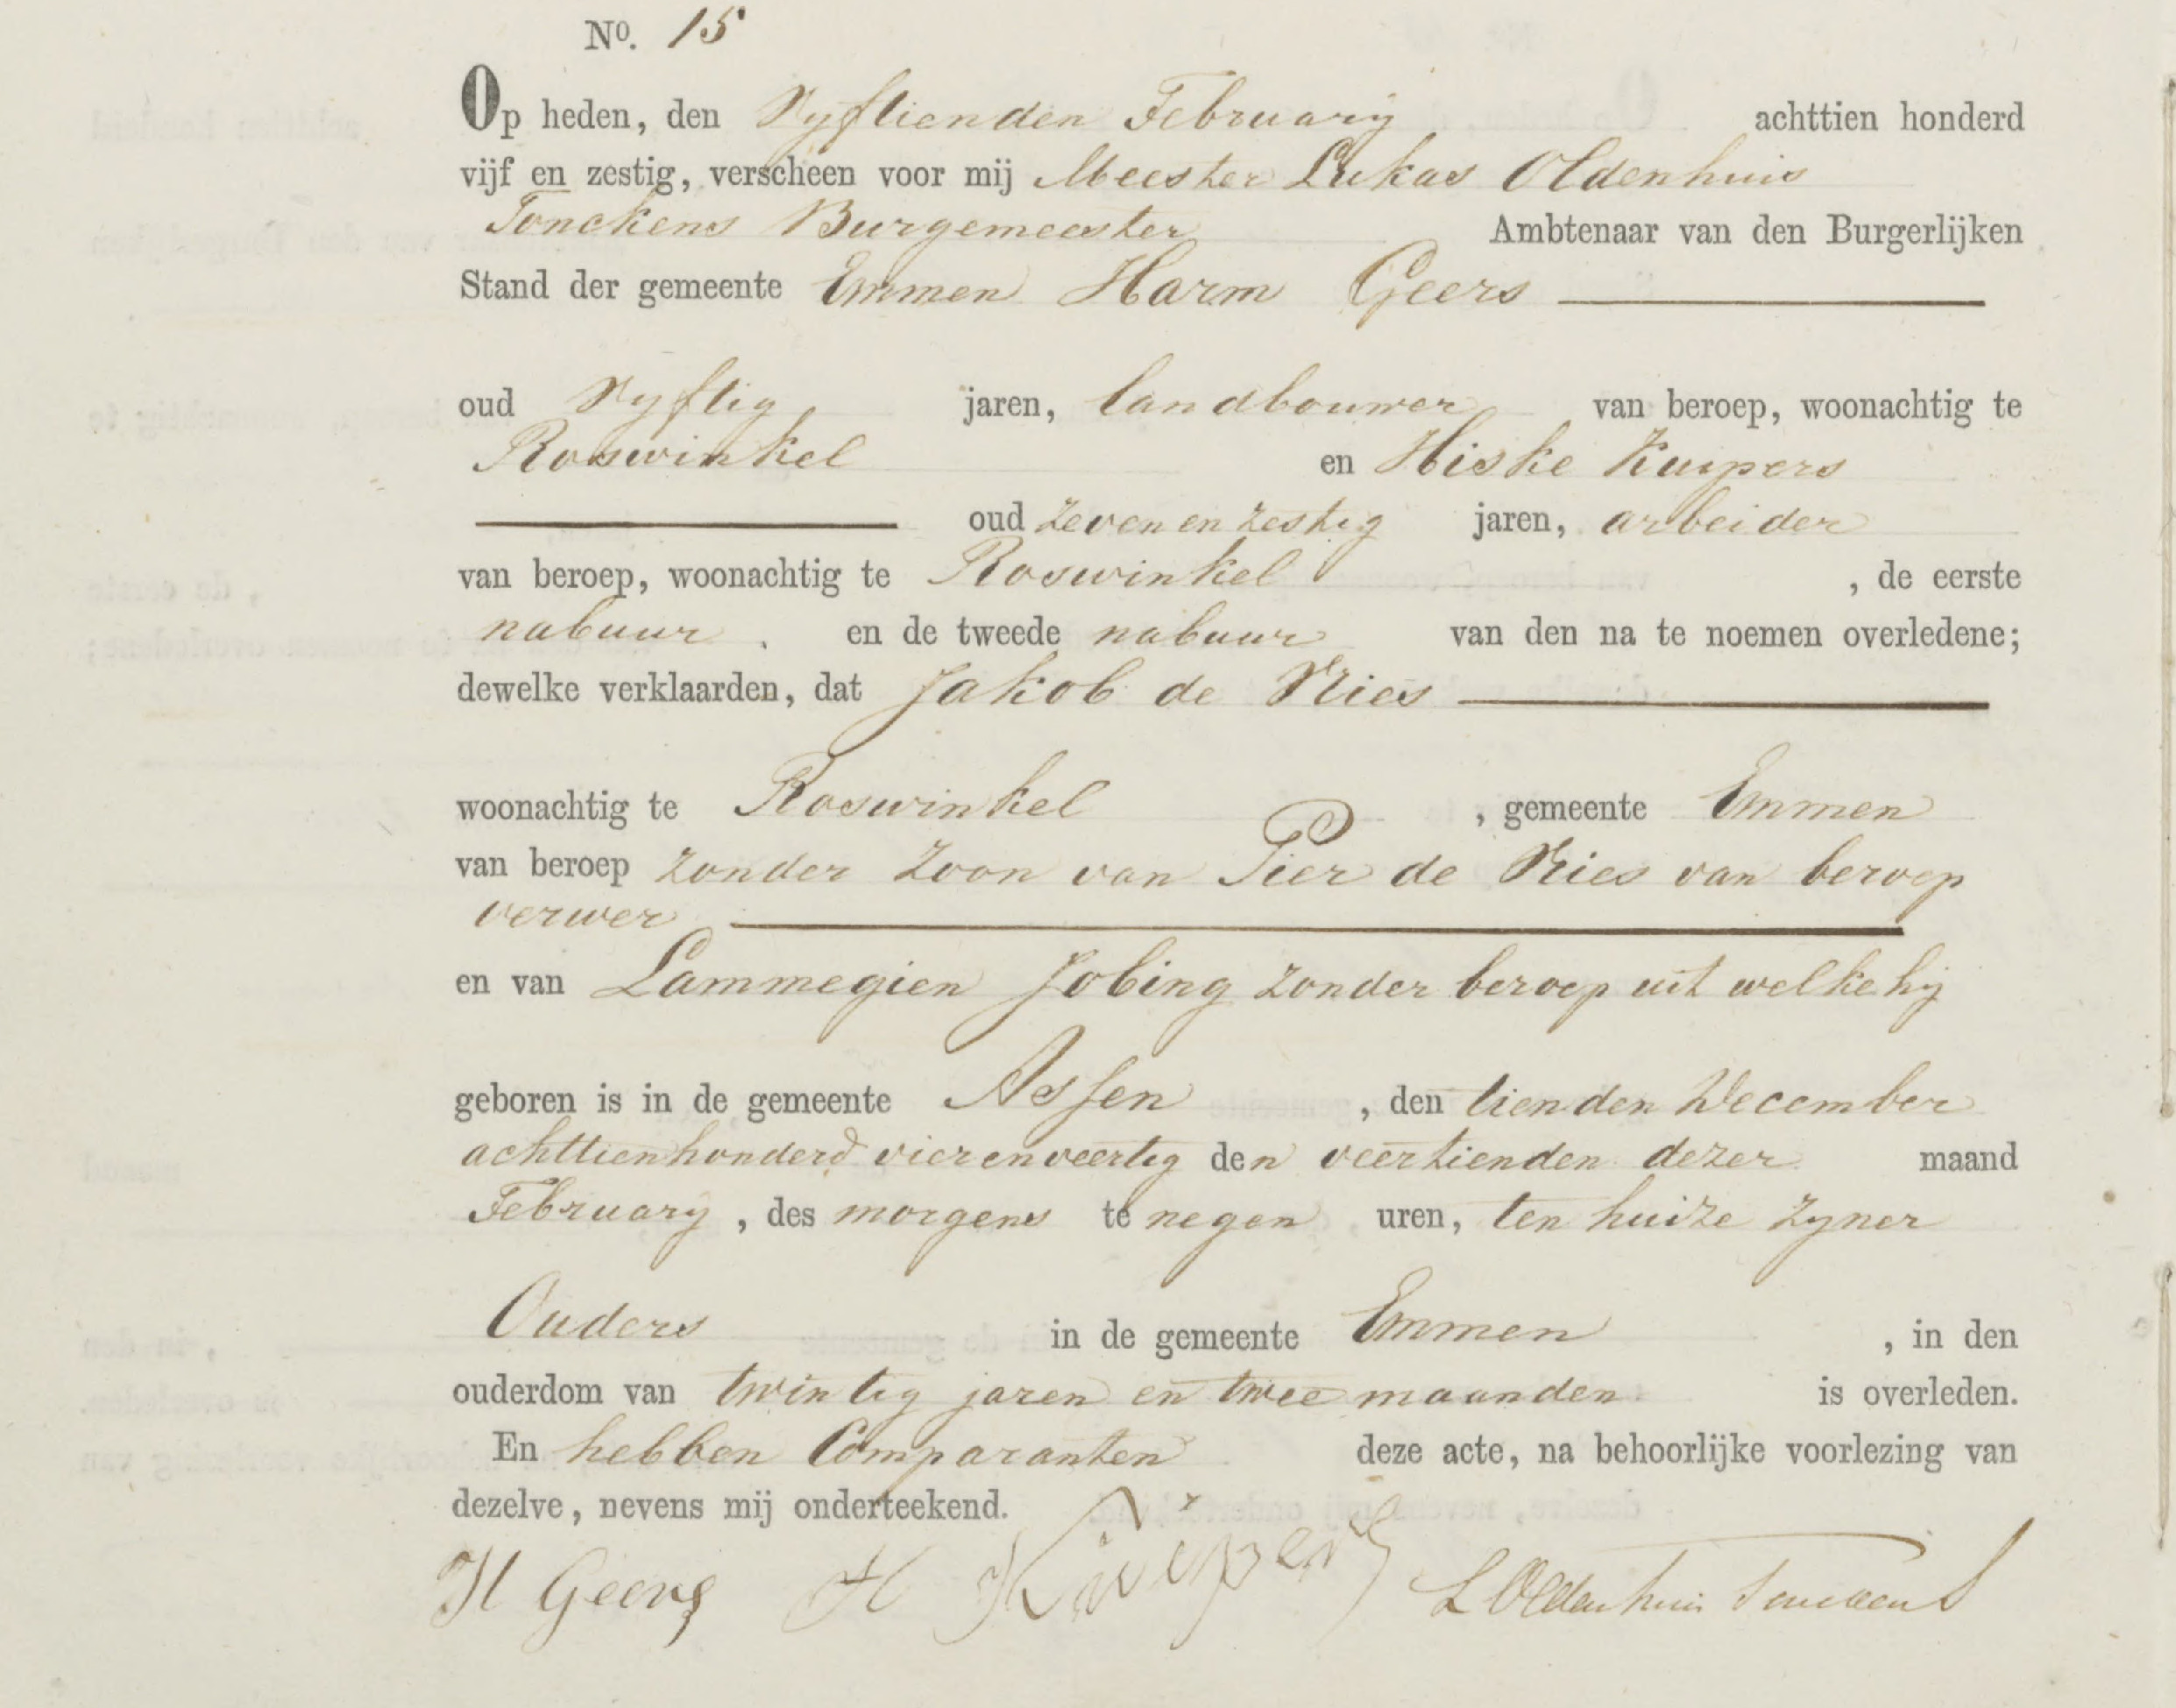 No. 15
Op heden, den Vyftienden February achttien honderd
vijf en zestig, verscheen voor mij Meester Lukas Oldenhuis
Tonckens Burgemeester Ambtenaar van den Burgerlijken
Stand der gemeente Emmen Harm Geers
oud Vyftig jaren, landbouwer van beroep, woonachtig te
Roswinkel en Hiske Kuipers
oud zeven en zestig jaren, arbeider
van beroep, woonachtig te Roswinkel , de eerste
nabuur . en de tweede nabuur van den na te noemen overledene;
dewelke verklaarden, dat Jakob de Vries
woonachtig te Roswinkel , gemeente Emmen
van beroep zonder Zoon van Pier de Vries van beroep
verwer
en van Lammegien Jobing zonder beroep uit welke hij
geboren is in de gemeente Assen , den tienden December
achttienhonderd vierenveertig den veertienden dezer maand
February , des morgens te negen uren, ten huize zyner
Ouders in de gemeente Emmen , in den
ouderdom van twintig jaren en twee maanden is overleden.
En hebben Comparanten deze acte, na behoorlijke voorlezing van
dezelve, nevens mij onderteekend.
H Geers H Kuipers L Oldenhuis Tonckens